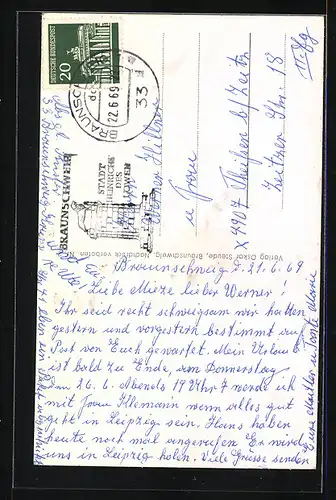 DEUTSCHE BUNDESPOST
20
BRAUNSCHW
22.6.69
33
BRAUNSCHWEIG
STADT
HEINRICHS
DES
LÖWEN
Werner
u Frau
X 4907 Theißen b/Zeitz
Zeitzer Str. 18
II. Etg
Verlag Oskar Staude, Braunschweig. Nachdruck verboten
Braunschweig d. 21.6.69
Liebe Mieze lieber Werner!
Ihr seid recht schweigsam wir hatten
gestern und vorgestern bestimmt auf
Post von Euch gewartet. Mein Urlaub
ist bald zu Ende, am Donnerstag
den 26.6. Abends 19 Uhr 7 werde ich
mit Frau Illemann wenn alles gut
geht in Leipzig sein. Hans haben
heute noch mal angerufen Er wird
uns in Leipzig holen. Viele Grüsse senden
Eure Mutter u Tante Marie